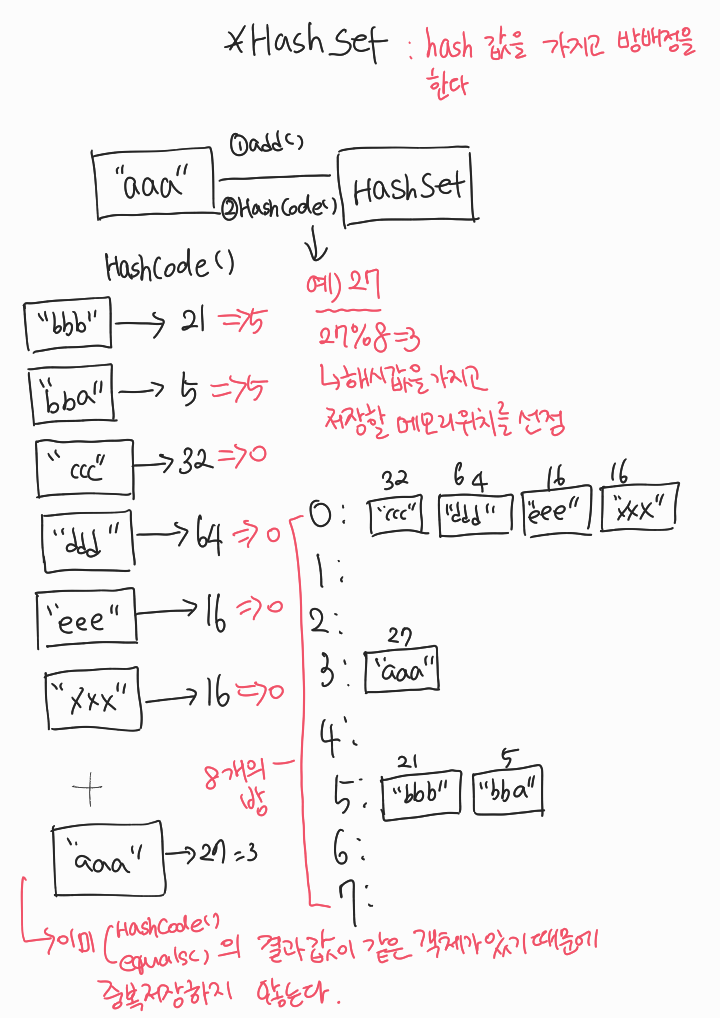 *HashSet : hash 값을 가지고 방배정을
한다
"aaa" ①add() HashSet
②HashCode()
HashCode()
예) 27
27%8=3
↳해시값을 가지고
저장할 메모리위치를 선정
"bbb" → 21 ⇒5
"bba" → 5 ⇒5
"ccc" → 32 ⇒0
"ddd" → 64 ⇒0
"eee" → 16 ⇒0
"xxx" → 16 ⇒0
+
"aaa" → 27=3
8개의
방
32 64 16 16
0: "ccc" "ddd" "eee" "xxx"
1:
2:
27
3: "aaa"
4:
21 5
5: "bbb" "bba"
6:
7:
→이미 (HashCode()
equals() 의 결과값이 같은 객체가있기때문에
중복저장하지 않는다.